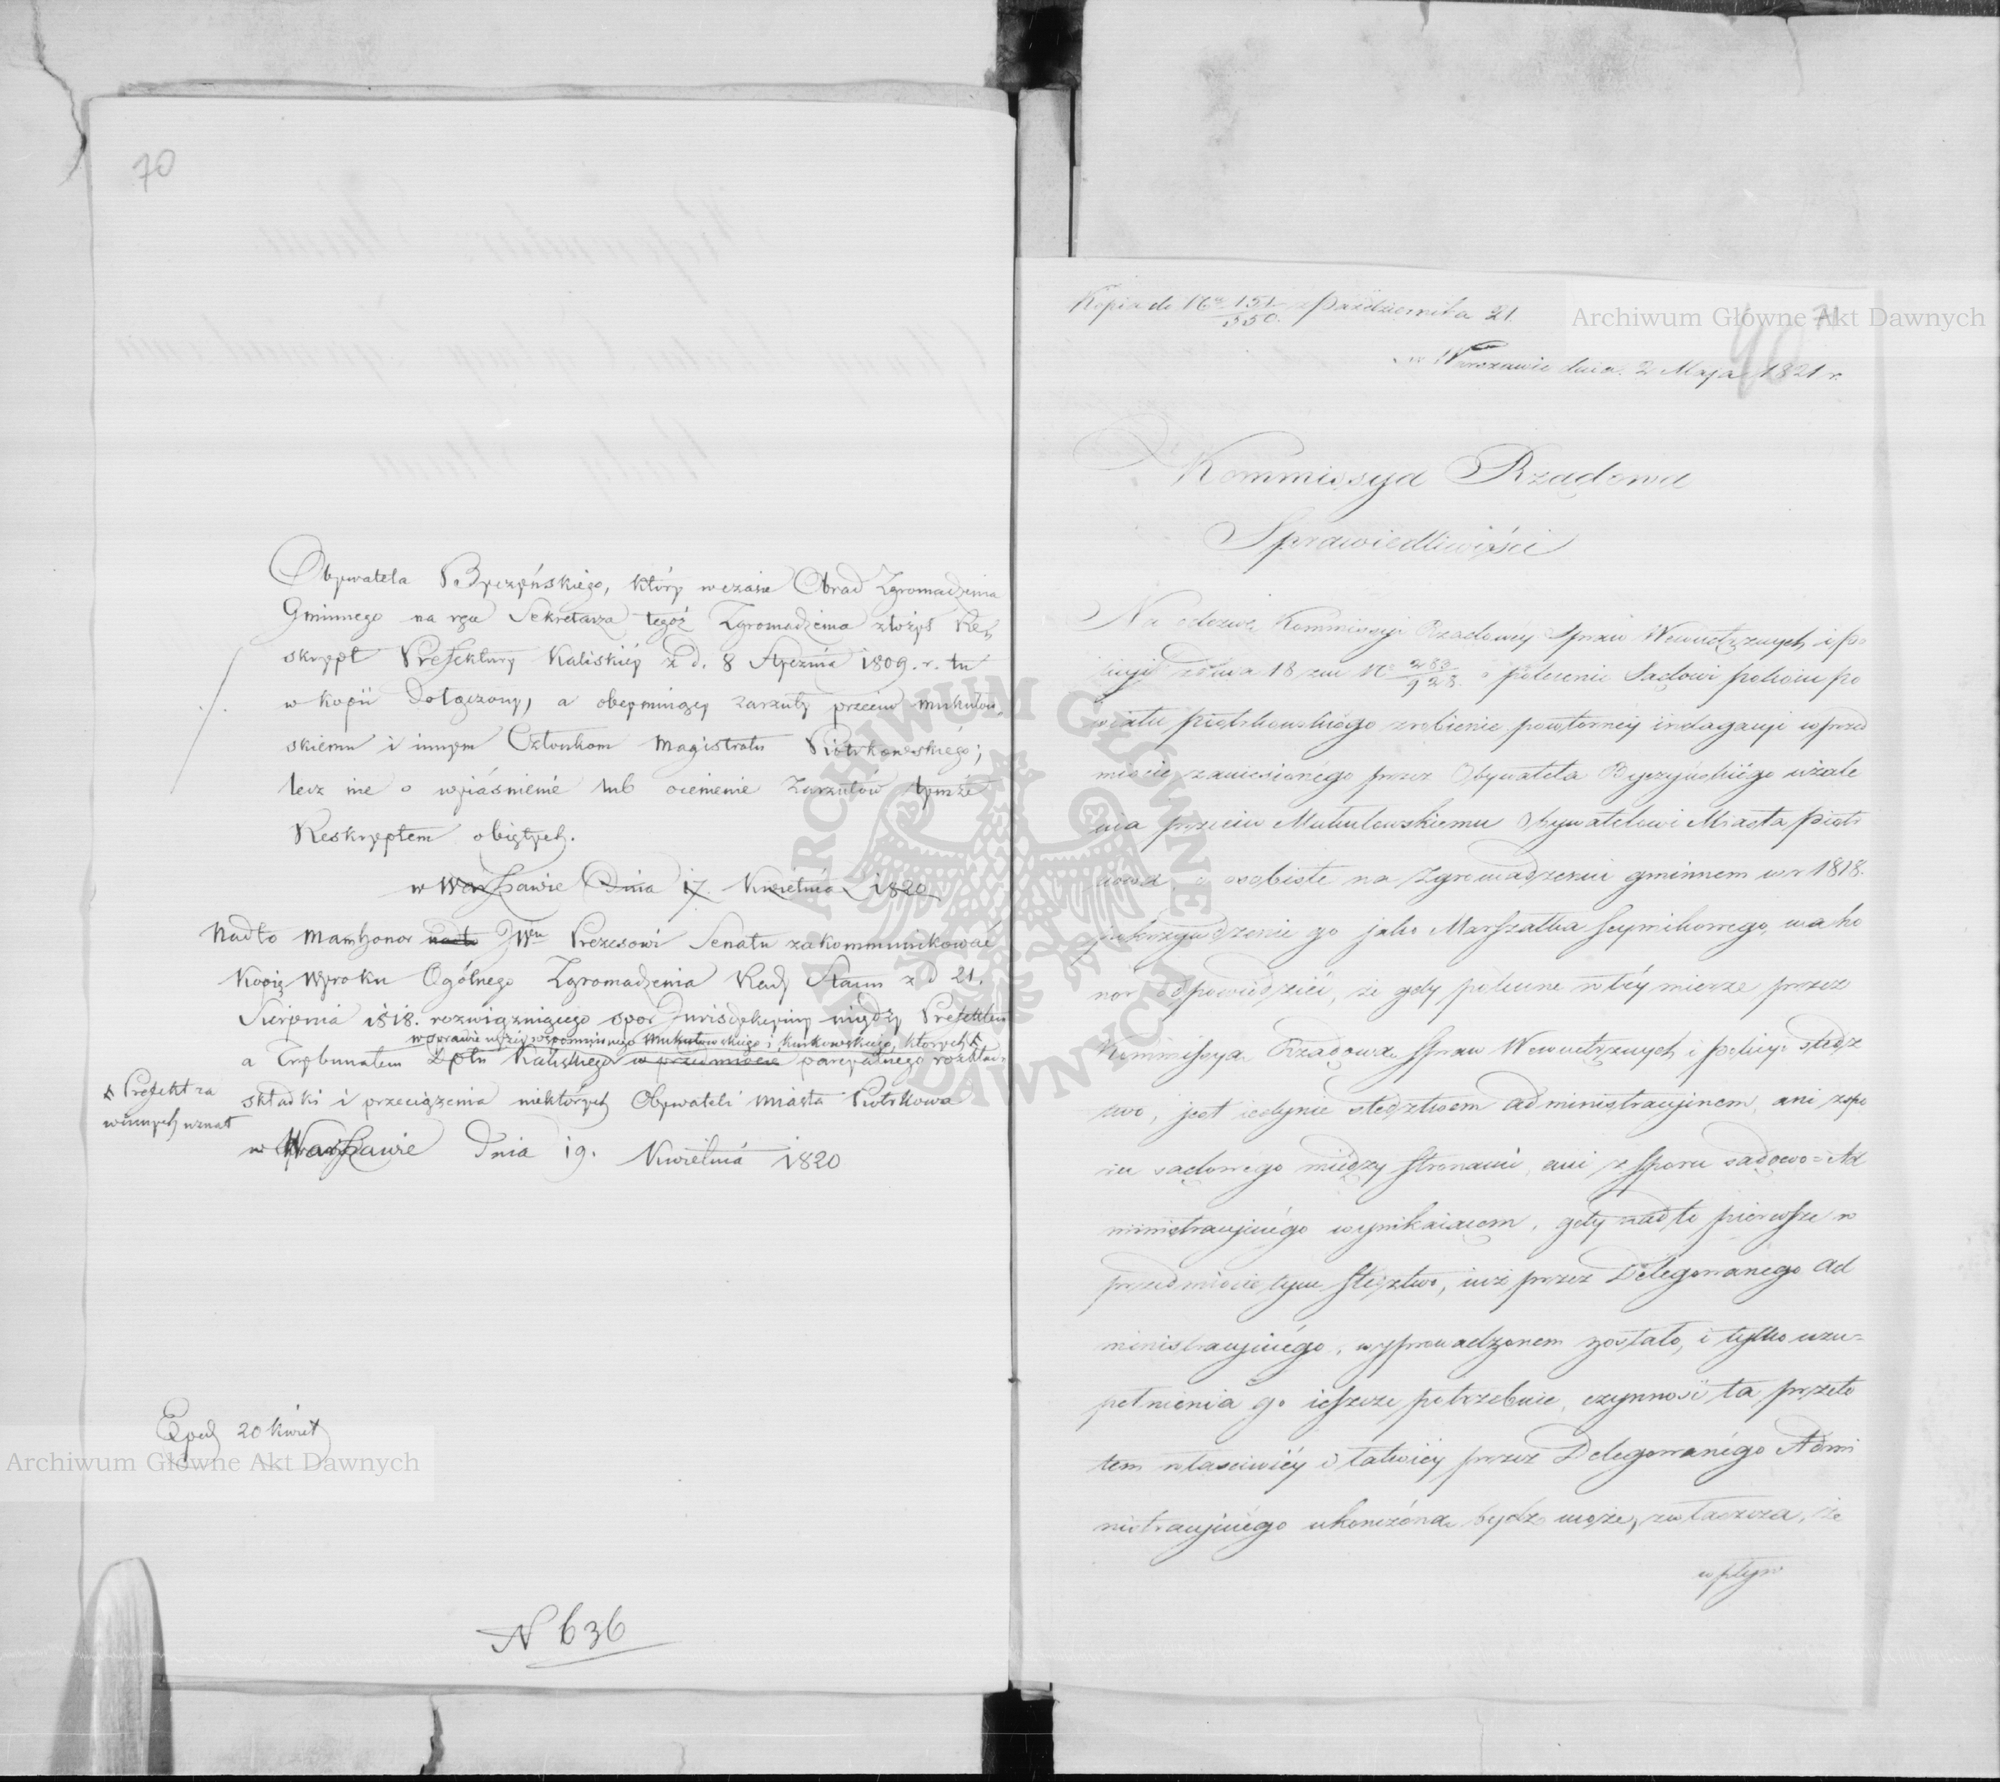 70
Obywatela Byczyńskiego, który w czasie Obrad Zgromadzenia
Gminnego na ręce Sekretarza tegoż Zgromadzenia złożył Re=
skrypt Prefektury Kaliskiéy z d. 8 Stycznia 1809. r. tu
w kopii dołączony, a obeymuiący zarzuty przeciw Mukułow=
skiemu i innym Członkom Magistratu Piotrkowskiego;
lecz nie o wyiaśnienie lub ocenienie Zarzutów tymże
Reskryptem obiętych.
w Warszawie Dnia 17. Kwietnia 1820
Nadto mam honor nadto JWu Prezesowi Senatu zakommunikować
Kopię Wyroku Ogólnego Zgromadzenia Rady Stanu z d 21.
Sierpnia 1818. rozwiązuiącego spor Jurisdykcyiny między Prefektem
w sprawie wyżey wspomnionego Mukułowskiego i Kurkowskiego, których
a Trybunałem Dptu Kaliskiego w przedmiocie parcyalnego rozkładu
składki i przeciążenia niektórych Obywateli miasta Piotrkowa
Prefekt za
winnych uznał
w Warszawie Dnia 19. Kwietnia 1820
Exped 20 kwiet
Archiwum Główne Akt Dawnych
N 636
Kopia do No 151/550. Października 21
Archiwum Główne Akt Dawnych
71
90
w Warszawie dnia 2 Maja 1821 r.
Kommissya Rządowa
Sprawiedliwości
Na odezwę Kommissyi Rządowéy Spraw Wewnętrznych i Po
licyi z dnia 18 zm No 283/928. o polecenie Sądowi policyi po
wiatu piotrkowskiego zrobienie powtórnéy indagacyi w przed
miocie zaniesionégo przez Obywatela Byczyńskiégo użale
nia przeciw Mukułowskiemu Obywatelowi Miasta Piotr
kowa, o osobiste na Zgromadzeniu gminnem w r 1818.
pokrzywdzenie go jako Marszałka seymikowego, ma ho
nor odpowiedzieć, że gdy polecone w téy mierze przez
Kommissyą Rządową Spraw Wewnętrznych i policyi śledz
two, jest iedynie śledztwem administracyinem, ani z spo
ru sądowego między stronami, ani z sporu sądowo=Ad
ministracyinégo wynikaiącem, gdy nadto pierwsze w
przedmiocie tym śledztwo, iuż przez Delegowanego Ad
ministracyinégo, wyprowadzonem zostało, i tylko uzu=
pełnienia go ieszcze potrzebuie, czynność ta przeto
tem właściwiéy i łatwiéy przez Delegowanégo Admi
nistracyinégo ukończóna bydź może, zwłaszcza, że
wpływ
ARCHIWUM GŁÓWNE AKT DAWNYCH